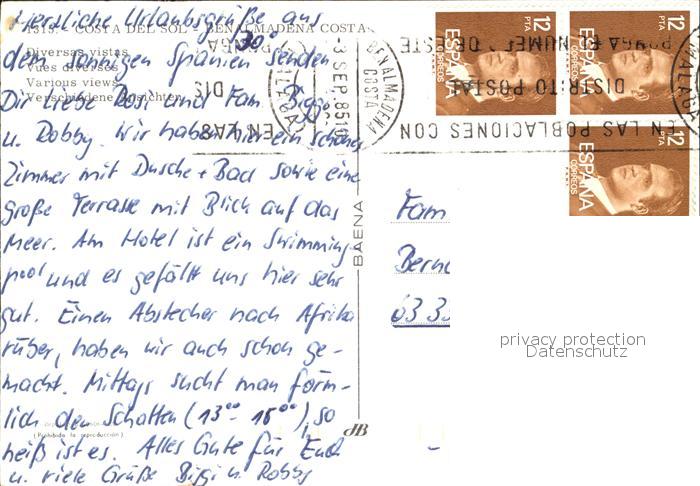 1313. COSTA DEL SOL - BENALMADENA COSTA
Diversas vistas
Vues diverses
Various views
Verschiedene Ansichten
Herzliche Urlaubsgrüße aus
dem sonnigen Spanien senden
Dir liebe Dori und Fam. Biggi
u. Robby. Wir haben hier ein schönes
Zimmer mit Dusche + Bad sowie eine
große Terrasse mit Blick auf das
Meer. Am Hotel ist ein Swimming-
pool und es gefällt uns hier sehr
gut. Einen Abstecher nach Afrika
rüber, haben wir auch schon ge-
macht. Mittags sucht man förm-
lich den Schatten (13°° - 16°°), so
heiß ist es. Alles Gute für Euch
u. viele Grüße Biggi u. Robby
30°
(Prohibida la reproducción)
BAENA
dB
Fam
Bern
63 33
12 PTA
ESPAÑA
CORREOS
12 PTA
ESPAÑA
CORREOS
12 PTA
ESPAÑA
CORREOS
BENALMADENA
COSTA
3 SEP. 85
MALAGA
EN LAS POBLACIONES CON
DISTRITO POSTAL
PONGA EL NUMERO DE ESTE
EN LAS
privacy protection
Datenschutz